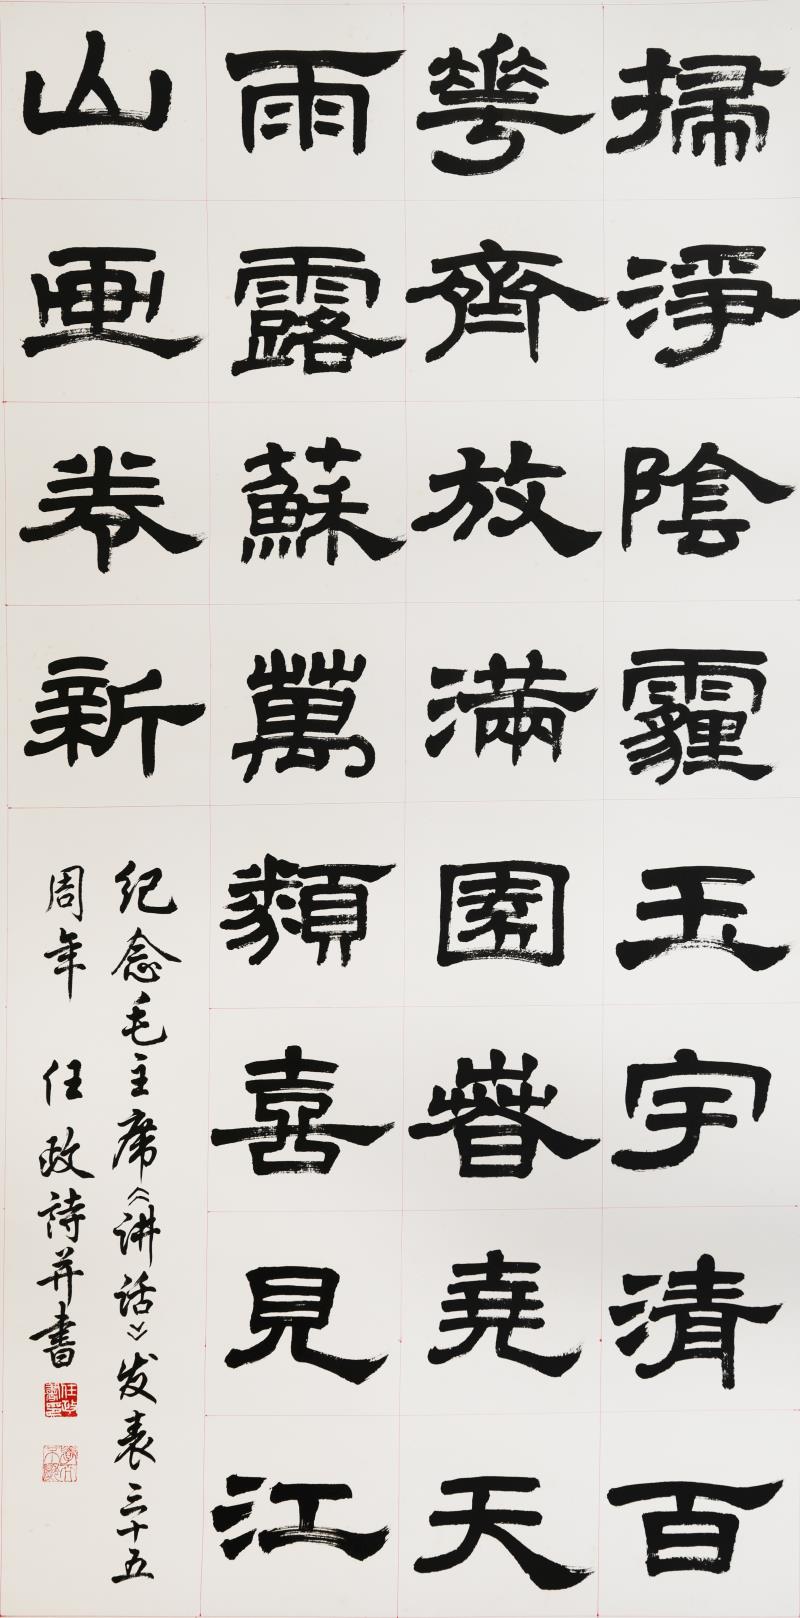 掃淨陰霾玉宇清百
華齊放滿園春堯天
雨露蘇萬類喜見江
山画卷新
纪念毛主席《讲话》发表三十五
周年 任政詩并書